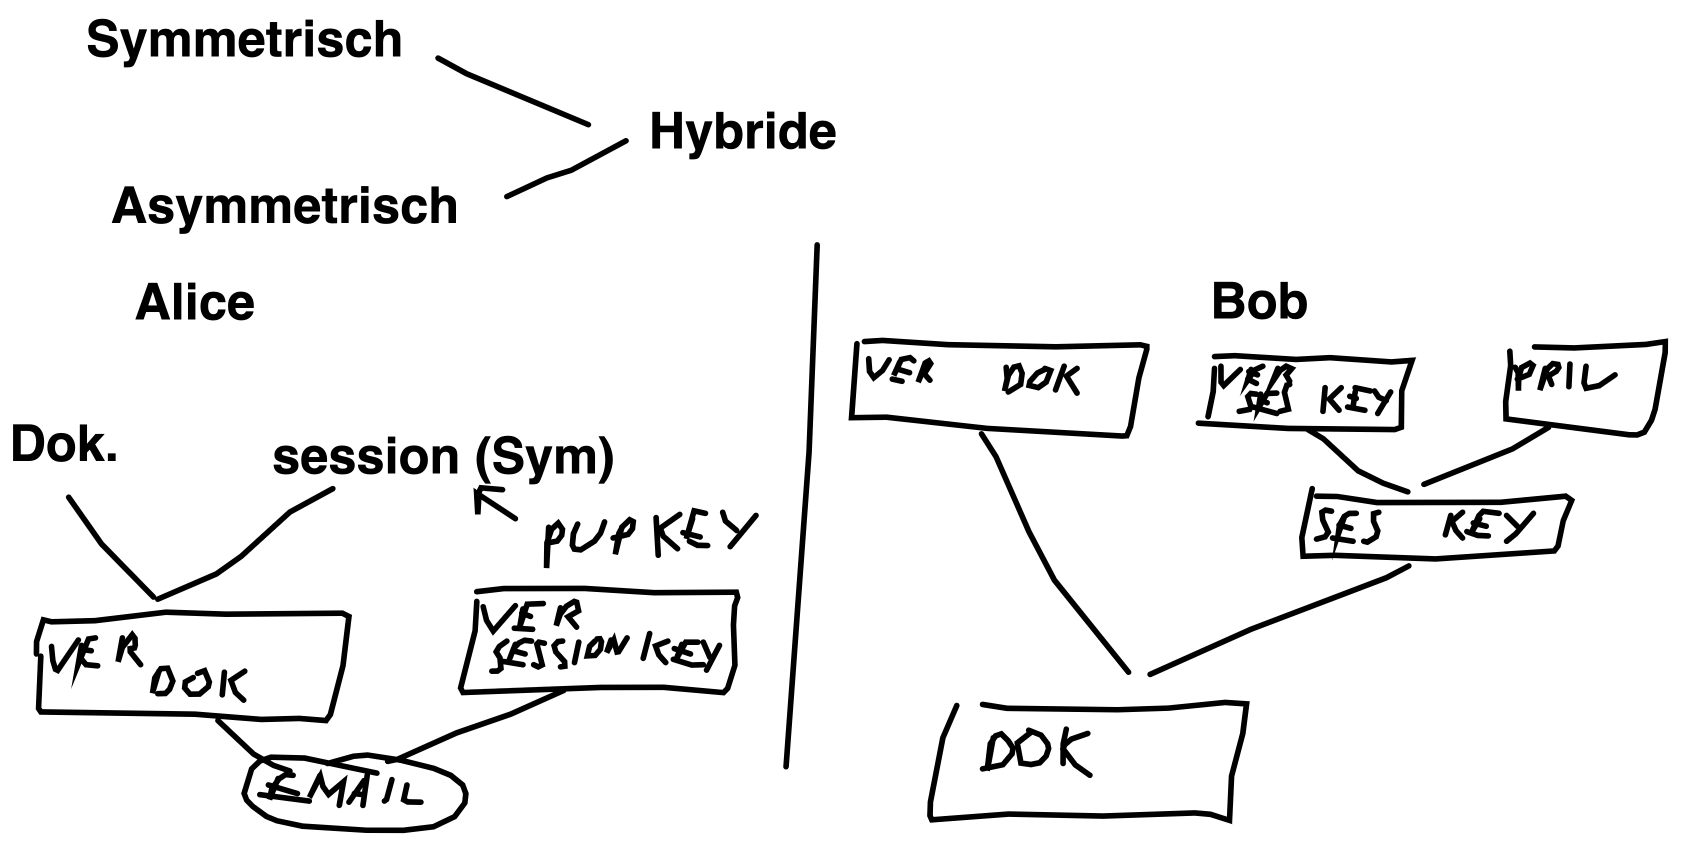 Symmetrisch
Hybride
Asymmetrisch
Alice
Dok.
session (Sym)
PUP KEY
VER
DOK
VER
SESSION KEY
EMAIL
Bob
VER DOK
VER
SES KEY
PRIV
SES KEY
DOK